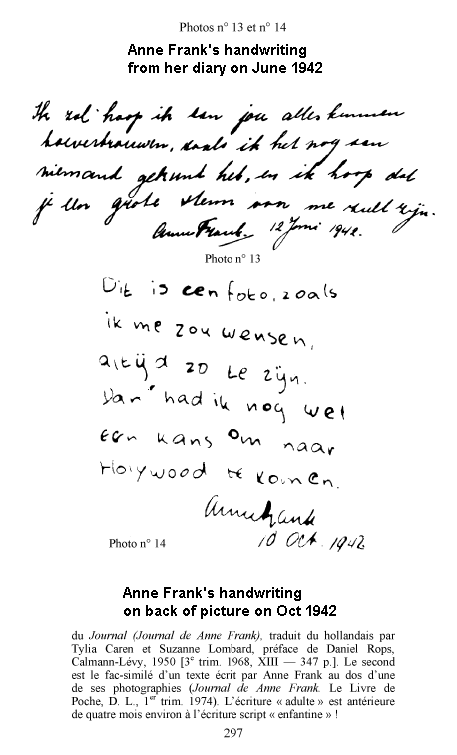 Photos n° 13 et n° 14
Anne Frank's handwriting
from her diary on June 1942
Ik zal hoop ik aan jou alles kunnen
toevertrouwen, zoals ik het nog aan
niemand gekund heb, en ik hoop dat
je een grote steun van me zult zijn.
Anne Frank. 12 Juni 1942.
Photo n° 13
Dit is een foto, zoals
ik me zou wensen,
altijd zo te zijn.
Dan had ik nog wel
een kans om naar
Holywood te komen.
Anne Frank
10 Oct. 1942
Photo n° 14
Anne Frank's handwriting
on back of picture on Oct 1942
du Journal (Journal de Anne Frank), traduit du hollandais par
Tylia Caren et Suzanne Lombard, préface de Daniel Rops,
Calmann-Lévy, 1950 [3e trim. 1968, XIII — 347 p.]. Le second
est le fac-similé d'un texte écrit par Anne Frank au dos d'une
de ses photographies (Journal de Anne Frank. Le Livre de
Poche, D. L., 1er trim. 1974). L'écriture « adulte » est antérieure
de quatre mois environ à l'écriture script « enfantine » !
297